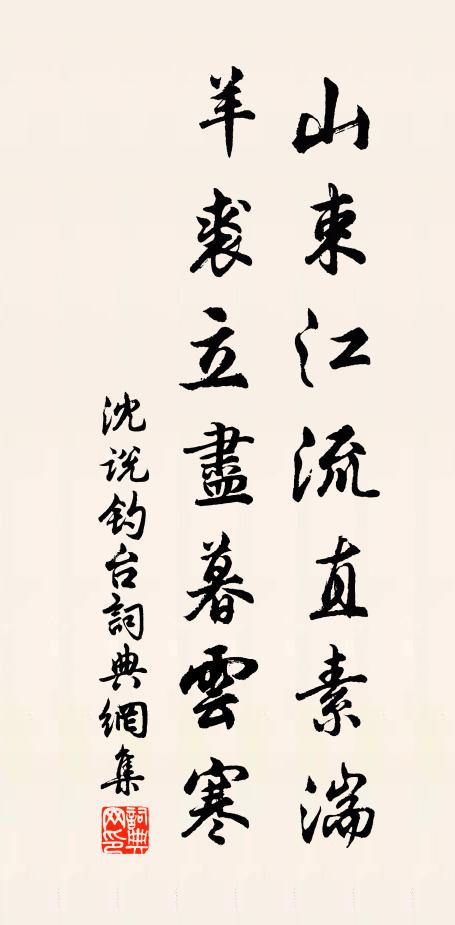 山束江流直素湍
羊裘立盡暮雲寒
沈说钓台詞典網集
詞典網印